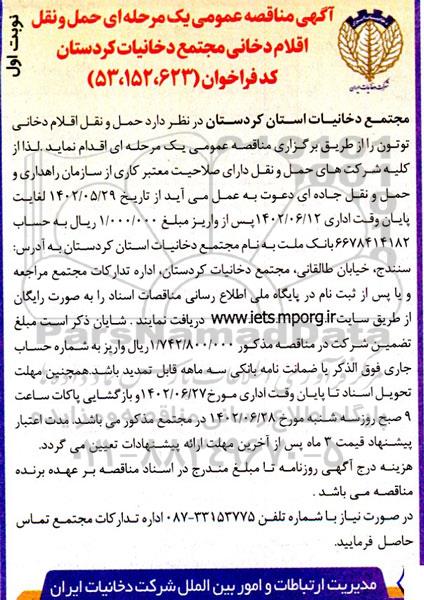 نوبت اول
آگهی مناقصه عمومی یک مرحله ای حمل و نقل
اقلام دخانی مجتمع دخانیات کردستان
کد فراخوان (۵۳،۱۵۲،۶۲۳)
شرکت دخانیات ایران
مجتمع دخانیات استان کردستان در نظر دارد حمل و نقل اقلام دخانی
توتون را از طریق برگزاری مناقصه عمومی یک مرحله ای اقدام نماید. لذا از
کلیه شرکت های حمل و نقل دارای صلاحیت معتبر کاری از سازمان راهداری و
حمل و نقل جاده ای دعوت به عمل می آید از تاریخ ۱۴۰۲/۰۵/۲۹ لغایت
پایان وقت اداری ۱۴۰۲/۰۶/۱۲ پس از واریز مبلغ ۱/۰۰۰/۰۰۰ ریال به حساب
۶۶۷۸۴۱۴۱۸۲ بانک ملت به نام مجتمع دخانیات استان کردستان به آدرس:
سنندج، خیابان طالقانی، مجتمع دخانیات کردستان، اداره تدارکات مجتمع مراجعه
و یا پس از ثبت نام در پایگاه ملی اطلاع رسانی مناقصات اسناد را به صورت رایگان
از طریق سایت www.iets.mporg.ir دریافت نمایند . شایان ذکر است مبلغ
تضمین شرکت در مناقصه مذکور ۱/۷۴۲/۸۰۰/۰۰۰ ریال واریز به شماره حساب
جاری فوق الذکر یا ضمانت نامه بانکی سه ماهه قابل تمدید باشد. همچنین مهلت
تحویل اسناد تا پایان وقت اداری مورخ ۱۴۰۲/۰۶/۲۷ و بازگشایی پاکات ساعت
۹ صبح روز سه شنبه مورخ ۱۴۰۲/۰۶/۲۸ در مجتمع مذکور می باشد. مدت اعتبار
پیشنهاد قیمت ۳ ماه پس از آخرین مهلت ارائه پیشنهادات تعیین می گردد.
هزینه درج آگهی روزنامه تا مبلغ مندرج در اسناد مناقصه بر عهده برنده
مناقصه می باشد .
در صورت نیاز با شماره تلفن ۳۳۱۵۳۷۷۵-۰۸۷ اداره تدارکات مجتمع تماس
حاصل فرمایید.
مدیریت ارتباطات و امور بین الملل شرکت دخانیات ایران